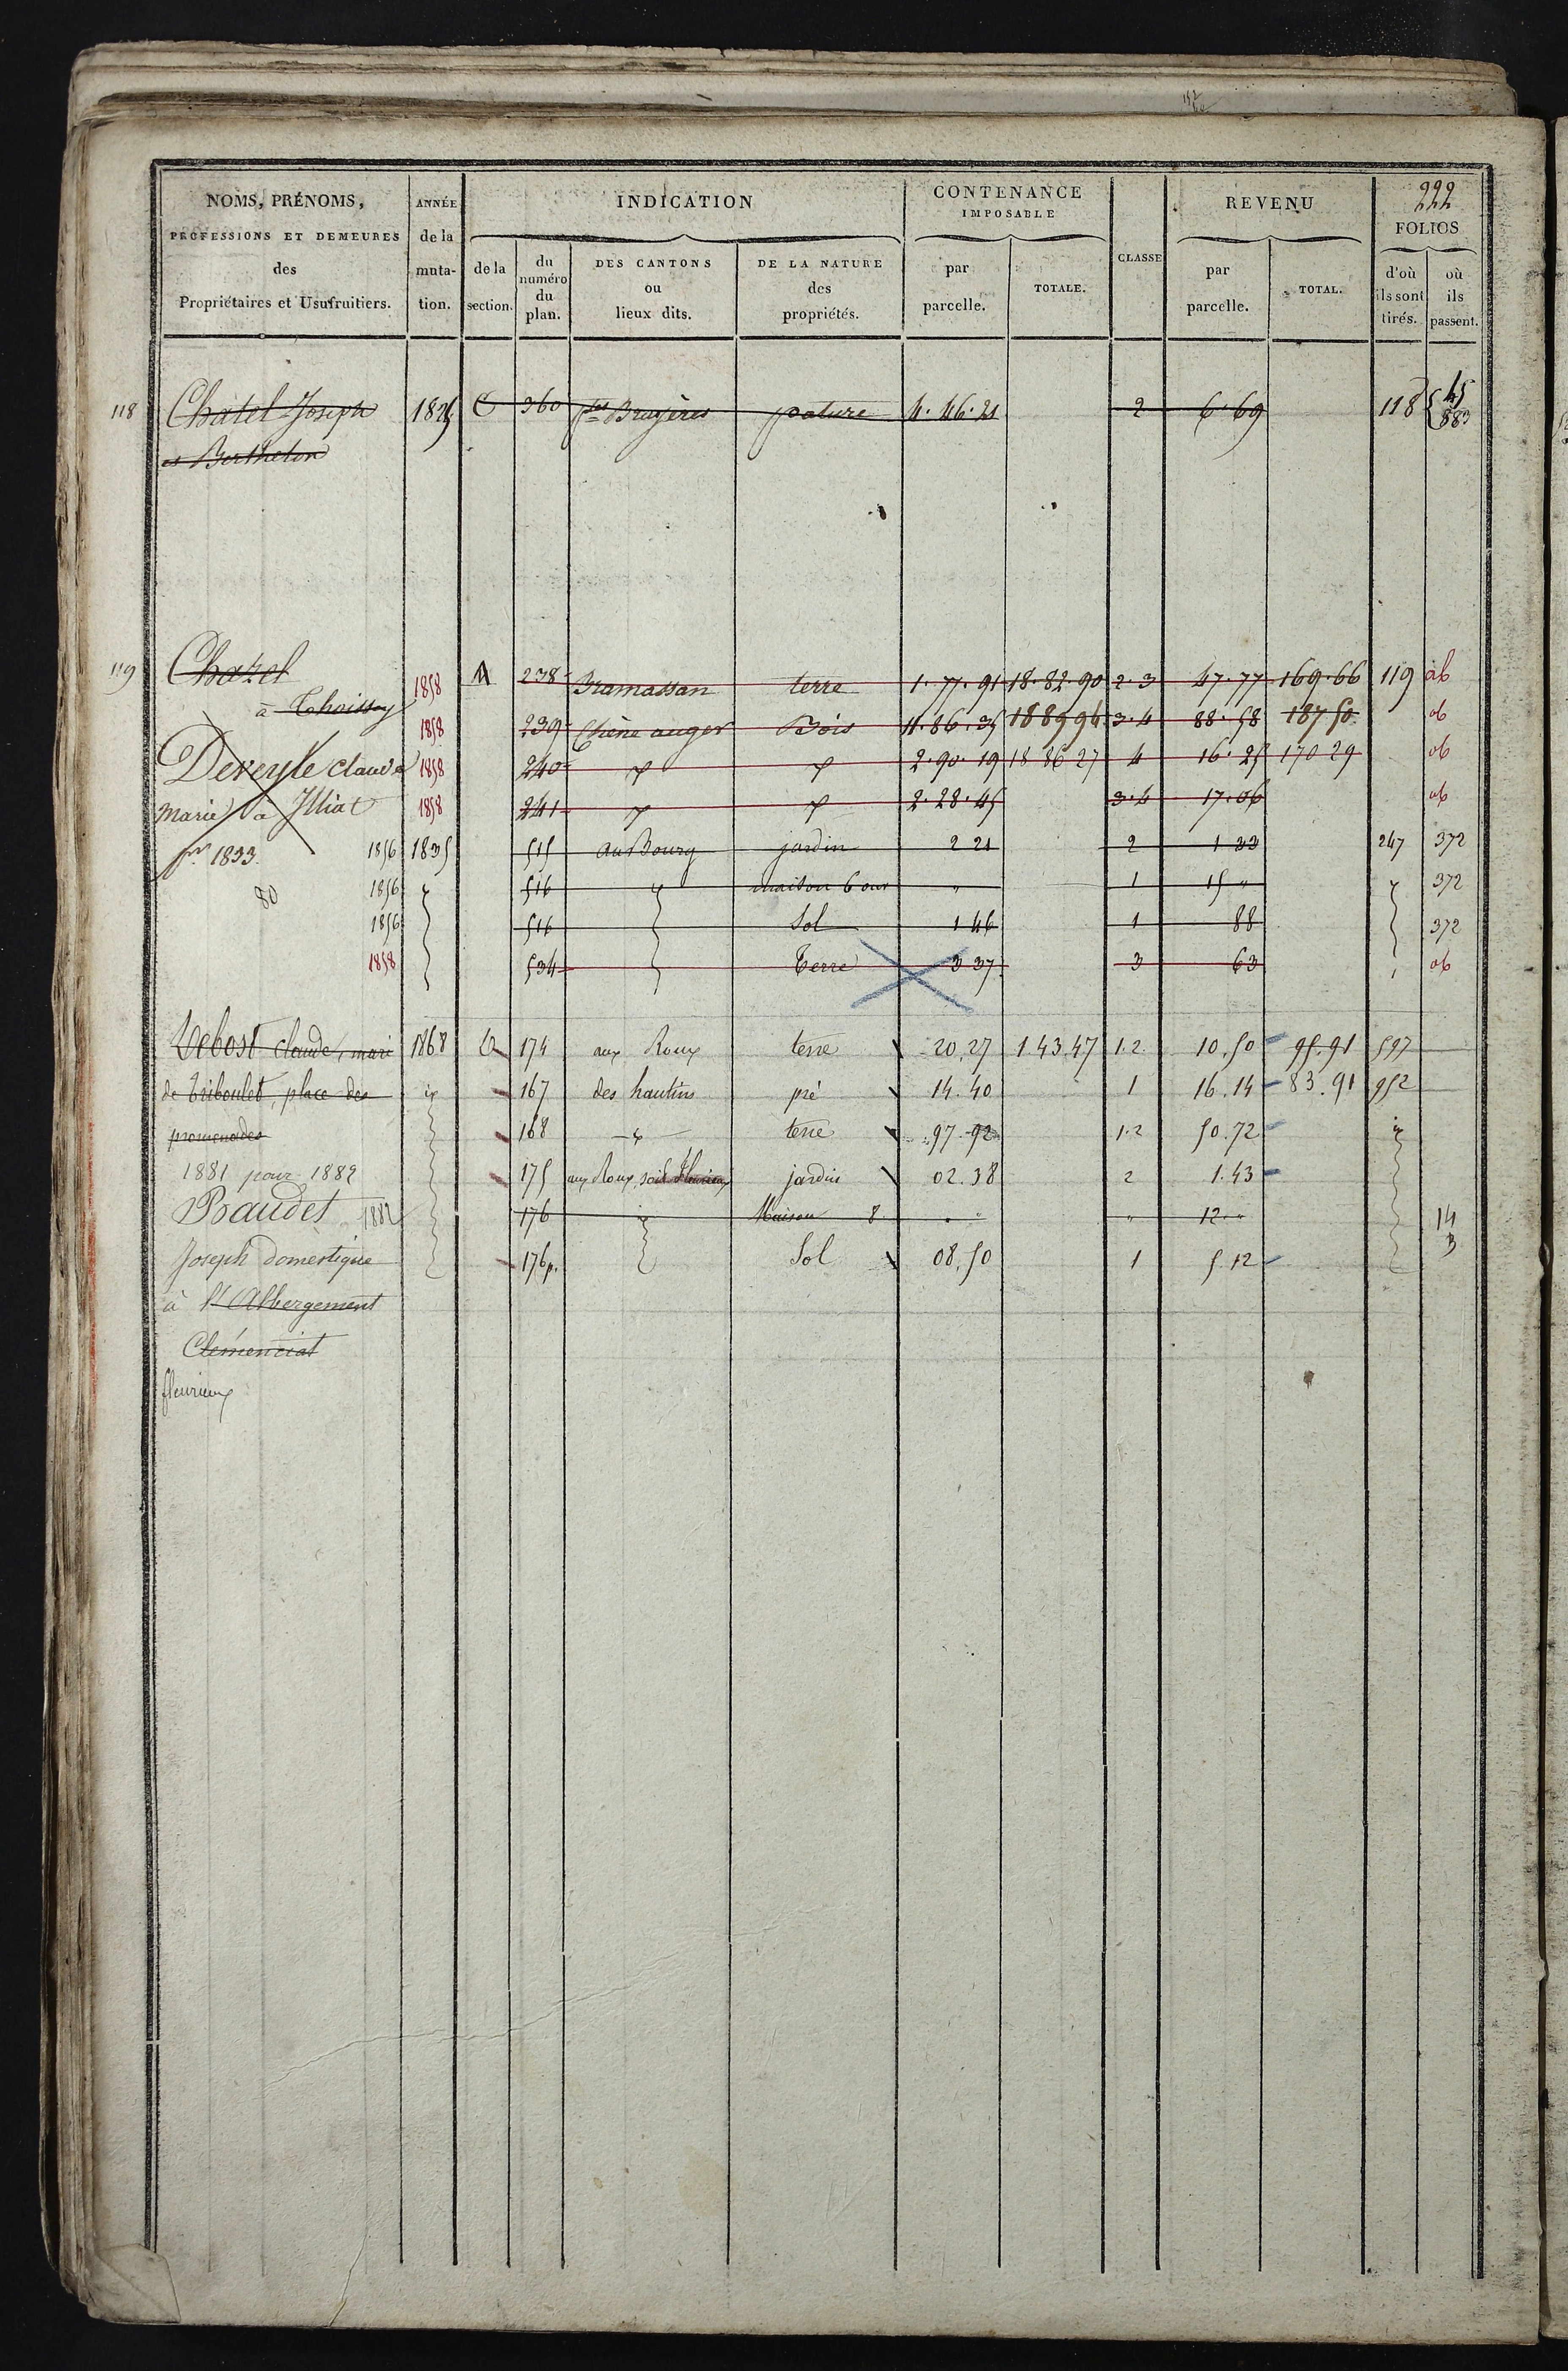 222
NOMS, PRÉNOMS, PROFESSIONS ET DEMEURES des Propriétaires et Usufruitiers. | ANNÉE de la muta-tion. | INDICATION | CONTENANCE IMPOSABLE | CLASSE | REVENU | FOLIOS
de la section. | du numéro du plan. | DES CANTONS ou lieux dits. | DE LA NATURE des propriétés. | par parcelle. | TOTALE. | par parcelle. | TOTAL. | d'où ils sont tirés. | où ils passent.
118 Chatel Joseph 1825 C 360 Bruyères pature 4.46.21 2 6.69 118 45 883
et Berthelon
119 Chatel 1858 A 238 Bramassan terre 1.77.91 18.82.90 2.3 47.77 169.66 119 ab
à Thoissey
1858 239 Chène auger Bois 11.86.35 18 89 94 3.4 88.58 187 50 ab
Dereyle claude 1858 240 2.90.19 18 86 27 4 16.25 170 29 ab
marie à Illiat 1858 241 2.28.45 3.4 17.06 ab
pr 1833. 1856 1835 515 au Bourg jardin 2 21 2 1 33 247 372
80 1856 516 maison 6 our " 1 15 " 372
1856 516 Sol 1 46 1 88 372
1858 534 Terre 3 37 3 63 ab
Debost claude, mari 1868 B 174 aux Roux terre 20,27 1 43,47 1.2 10,50 95.91 597
de Triboulet, place des 167 des hautins pré 14.40 1 16.14 83.91 952
promenades 168 terre 97-92 1.2 50.72
1881 pour 1882 175 aux Roux, soit Fleurieux jardin 02.38 2 1.43
Baudet 1882 176 Maison 8 " " 12 " 14
Joseph domestique 176p. Sol 08,50 1 5.12 3
à l'Abbergement
Clémenciat
fleurieux